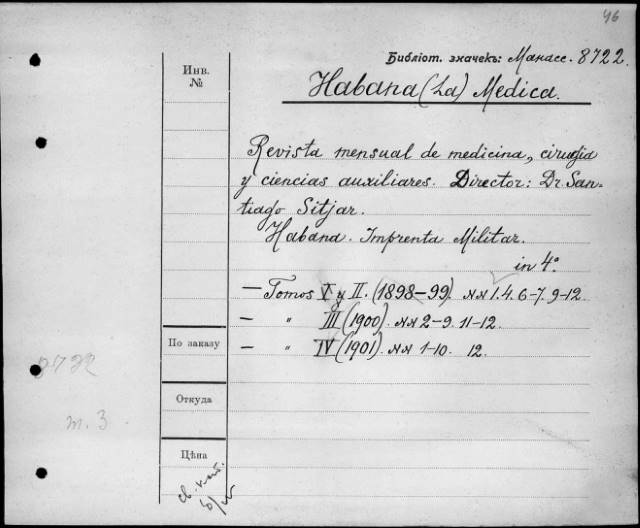 46
Библіот. значекъ: Манасс. 8722.
Инв.
№
Habana (La) Medica.
Revista mensual de medicina, cirugia
y ciencias auxiliares. Director: Dr. San-
tiago Sitjar.
Habana. Imprenta Militar.
in 4°
— Tomos I y II. (1898–99). NN 1. 4. 6–7. 9–12.
— " III (1900). NN 2–9. 11–12.
— " IV (1901). NN 1–10. 12.
По заказу
8722
Откуда
т. 3
Цѣна